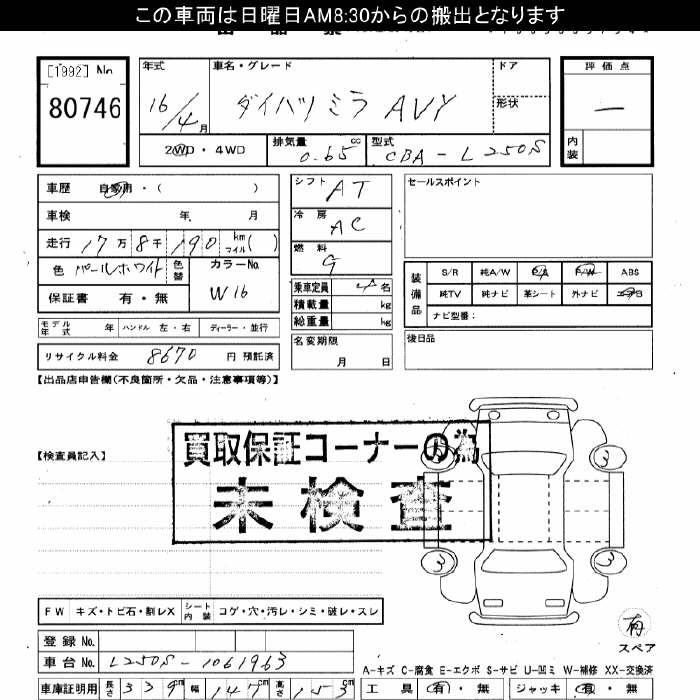 この車両は日曜日AM8:30からの搬出となります
[1992] No
80746
年式 車名・グレード ドア 評価点
16/4月 ダイハツ ミラ AVY 形状 ―
内装
2WD・4WD 排気量 0.65 cc 型式 CBA-L250S
車歴 自家用・( )
車検 年 月
走行 17万8千190 km マイル( )
色 パールホワイト 色替 カラーNo. W16
保証書 有・無
モデル年式 年 ハンドル 左・右 ディーラー・並行
リサイクル料金 8670 円 預託済
シフト AT
冷房 AC
燃料 G
乗車定員 4 名
積載量 kg
総重量 kg
名変期限 月 日
セールスポイント
装備品 S/R 純A/W P/S P/W ABS
純TV 純ナビ 革シート 外ナビ エアB
ナビ型番:
後日品
【出品店申告欄(不良箇所・欠品・注意事項等)】
【検査員記入】
買取保証コーナーの為
未検査
3
3
3
3
FW キズ・トビ石・割レX シート内装 コゲ・穴・汚レ・シミ・破レ・スレ
有
スペア
登録 No.
車台 No. L250S-1061963
A-キズ C-腐食 E-エクボ S-サビ U-凹ミ W-補修 XX-交換済
車庫証明用 長さ 339cm 幅 147cm 高さ 153cm
工具 有・無 ジャッキ 有・無